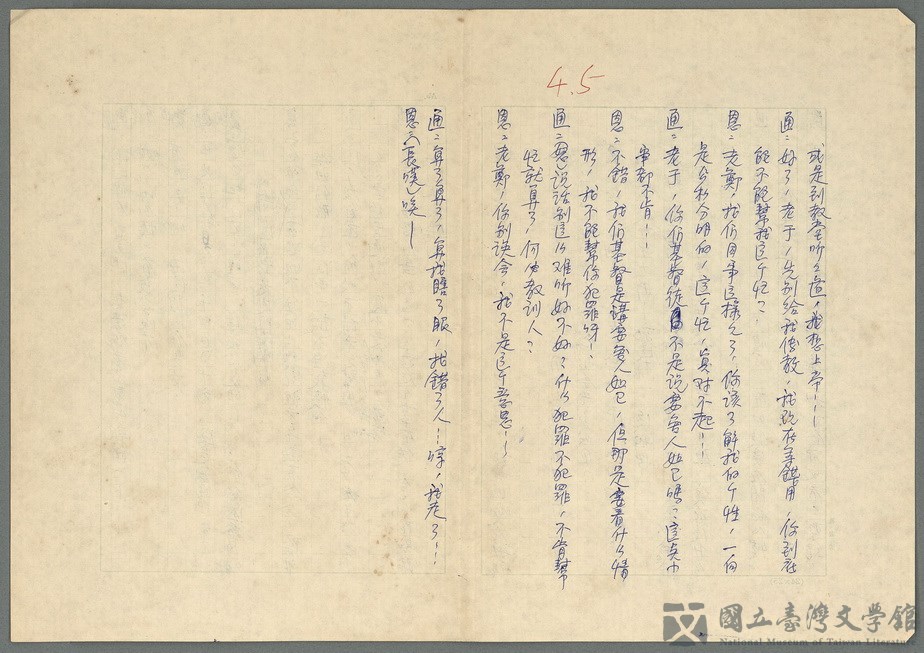 4.5
或是到教堂听听道,我想上帝…
通:好了,老于,先别给我传教,我现在等錢用,你到底
能不能幫我这个忙?
恩:老鄭,我们同事这樣久了,你该了解我的个性,一向
是公私分明的,這个忙,真对不起!…
通:老于,你们基督徒不是说要爱人如己嗎?这点小
事都不肯!…
恩:不錯,我们基督是講要爱人如己,但那是要看什么情
形,我不能幫你犯罪呀!
通:恩,说话别這么难听好不好?什么犯罪不犯罪,不肯幫
忙就算了,何必教训人?
恩:老鄭,你别误会,我不是这个意思!…
通:算了算了,算我瞎了眼,找錯了人!哼,我走了!…
恩:(長嘆)唉—
國立臺灣文學館
National Museum of Taiwan Literature